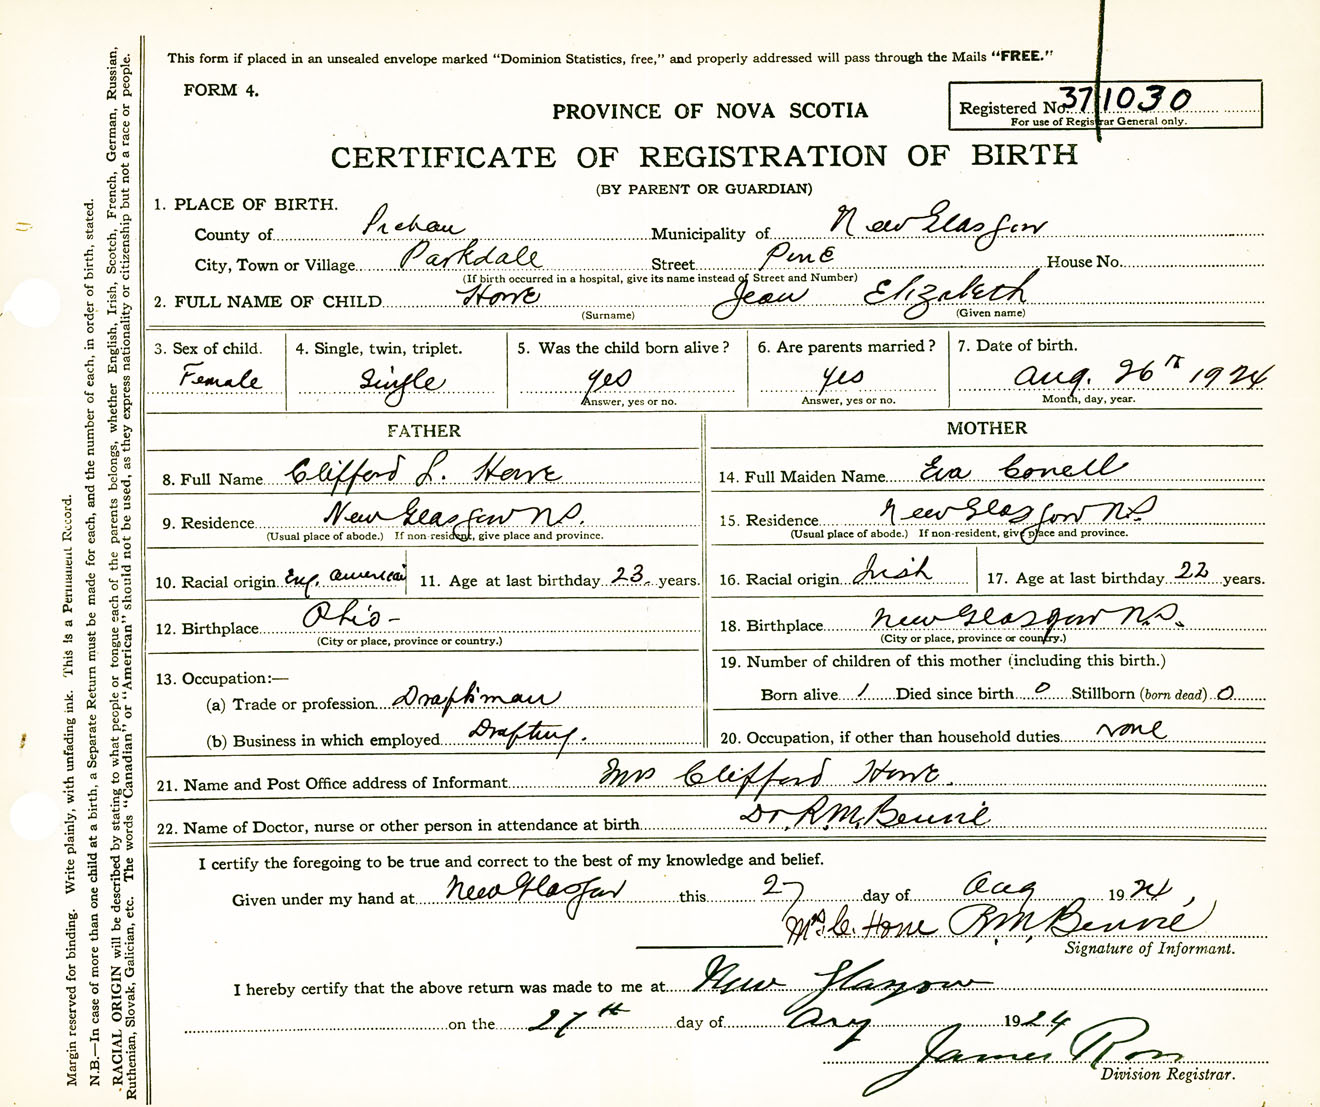 This form if placed in an unsealed envelope marked "Dominion Statistics, free," and properly addressed will pass through the Mails "FREE."
FORM 4.
PROVINCE OF NOVA SCOTIA
Registered No. 371030
For use of Registrar General only.
CERTIFICATE OF REGISTRATION OF BIRTH
(BY PARENT OR GUARDIAN)
1. PLACE OF BIRTH.
County of Municipality of New Glasgow
City, Town or Village Parkdale Street Pine House No.
(If birth occurred in a hospital, give its name instead of Street and Number)
2. FULL NAME OF CHILD Howe Jean Elizabeth
(Surname) (Given name)
3. Sex of child. 4. Single, twin, triplet. 5. Was the child born alive? 6. Are parents married? 7. Date of birth.
Female Single yes yes Aug. 26th 1924
Answer, yes or no. Answer, yes or no. Month, day, year.
FATHER MOTHER
8. Full Name Clifford L. Howe 14. Full Maiden Name Eva Conell
9. Residence New Glasgow N.S. 15. Residence New Glasgow N.S.
(Usual place of abode.) If non-resident, give place and province. (Usual place of abode.) If non-resident, give place and province.
10. Racial origin Eng. American 11. Age at last birthday 23 years. 16. Racial origin Irish 17. Age at last birthday 22 years.
12. Birthplace Ohio - 18. Birthplace New Glasgow N.S.
(City or place, province or country.) (City or place, province or country.)
13. Occupation:— 19. Number of children of this mother (including this birth.)
(a) Trade or profession Draftsman Born alive 1 Died since birth 0 Stillborn (born dead) 0
(b) Business in which employed Drafting. 20. Occupation, if other than household duties none
21. Name and Post Office address of Informant Mrs Clifford Howe.
22. Name of Doctor, nurse or other person in attendance at birth Dr. R.M. Benvie
I certify the foregoing to be true and correct to the best of my knowledge and belief.
Given under my hand at New Glasgow this 27 day of Aug 1924
Mrs. C. Howe R.M. Benvie
Signature of Informant.
I hereby certify that the above return was made to me at New Glasgow
on the 27th day of Aug 1924
James Ross
Division Registrar.
Margin reserved for binding. Write plainly, with unfading ink. This is a Permanent Record.
N.B.—In case of more than one child at a birth, a Separate Return must be made for each, and the number of each, in order of birth, stated.
RACIAL ORIGIN will be described by stating to what people or tongue each of the parents belongs, whether English, Irish, Scotch, French, German, Russian,
Ruthenian, Slovak, Galician, etc. The words "Canadian" or "American" should not be used, as they express nationality or citizenship but not a race or people.